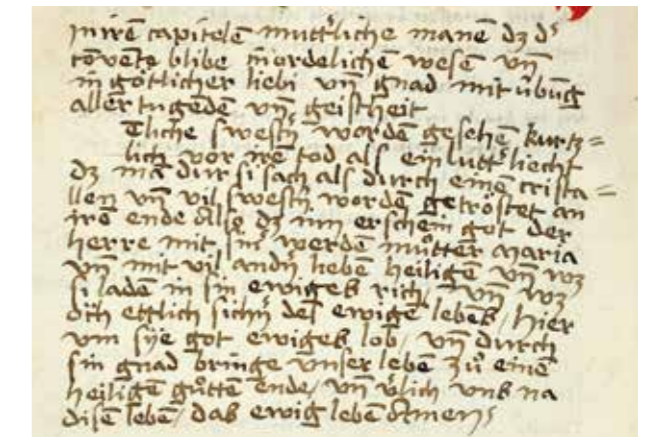 in irē capitelē mutt'liche manē dz d'
cōvēte blibe in ordelichē wesen vn̄
in gottlicher liebi vn̄ gnad mit übūg
aller tugēdē vn̄ geistheit
Etliche swest'n wordē gesehē kurtz=
lich vor irē tod als ein lutt' liecht
dz mā dur si sach als durch einē crista=
llen vn̄ vil swest'n wordē getröstet an
irē ende Also dz im erschein got der
herre mit sin' werdē můtter maria
vn̄ mit vil and'n liebē heiligē vn̄ wz
si ladē in sin ewiges rich vn̄ wz
och ettlich sich'n des ewigē lebēs / hier
vm sÿe got ewiges lob / vn̄ durch
sin gnad bringe vnser leben zů einē
heiligē gůttē ende / vn̄ v'lich vns na
disē lebē / das ewig lebē Amen